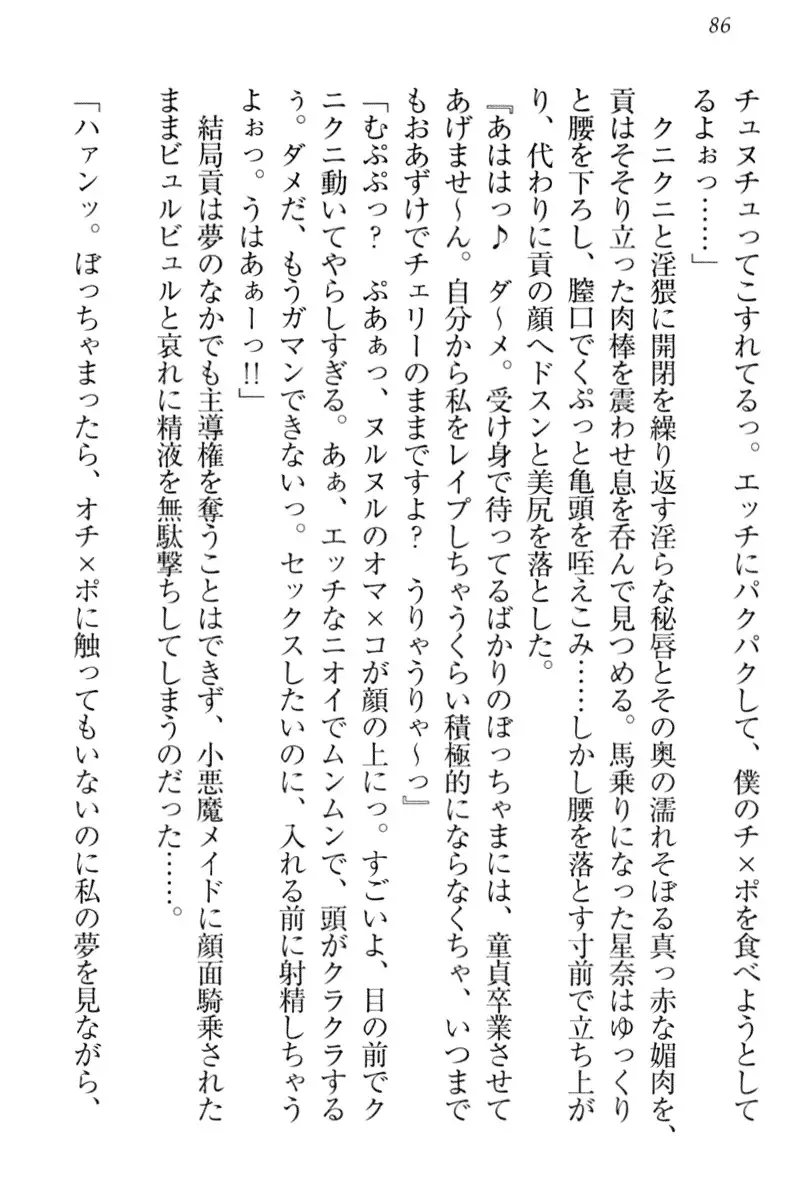 86
チュヌチュってこすれてるっ。エッチにパクパクして、僕のチ×ポを食べようとして
るよぉっ……」
クニクニと淫猥に開閉を繰り返す淫らな秘唇とその奥の濡れそぼる真っ赤な媚肉を、
貢はそそり立った肉棒を震わせ息を呑んで見つめる。馬乗りになった星奈はゆっくり
と腰を下ろし、膣口でくぷっと亀頭を咥えこみ……しかし腰を落とす寸前で立ち上が
り、代わりに貢の顔へドスンと美尻を落とした。
『あははっ♪　ダ～メ。受け身で待ってるばかりのぼっちゃまには、童貞卒業させて
あげませ～ん。自分から私をレイプしちゃうくらい積極的にならなくちゃ、いつまで
もおあずけでチェリーのままですよ？　うりゃうりゃ～っ』
「むぷぷっ？　ぷあぁっ、ヌルヌルのオマ×コが顔の上にっ。すごいよ、目の前でク
ニクニ動いてやらしすぎる。あぁ、エッチなニオイでムンムンで、頭がクラクラする
ぅ。ダメだ、もうガマンできないっ。セックスしたいのに、入れる前に射精しちゃう
よぉっ。うはあぁーっ!!」
結局貢は夢のなかでも主導権を奪うことはできず、小悪魔メイドに顔面騎乗された
ままビュルビュルと哀れに精液を無駄撃ちしてしまうのだった……。
「ハァンッ。ぼっちゃまったら、オチ×ポに触ってもいないのに私の夢を見ながら、